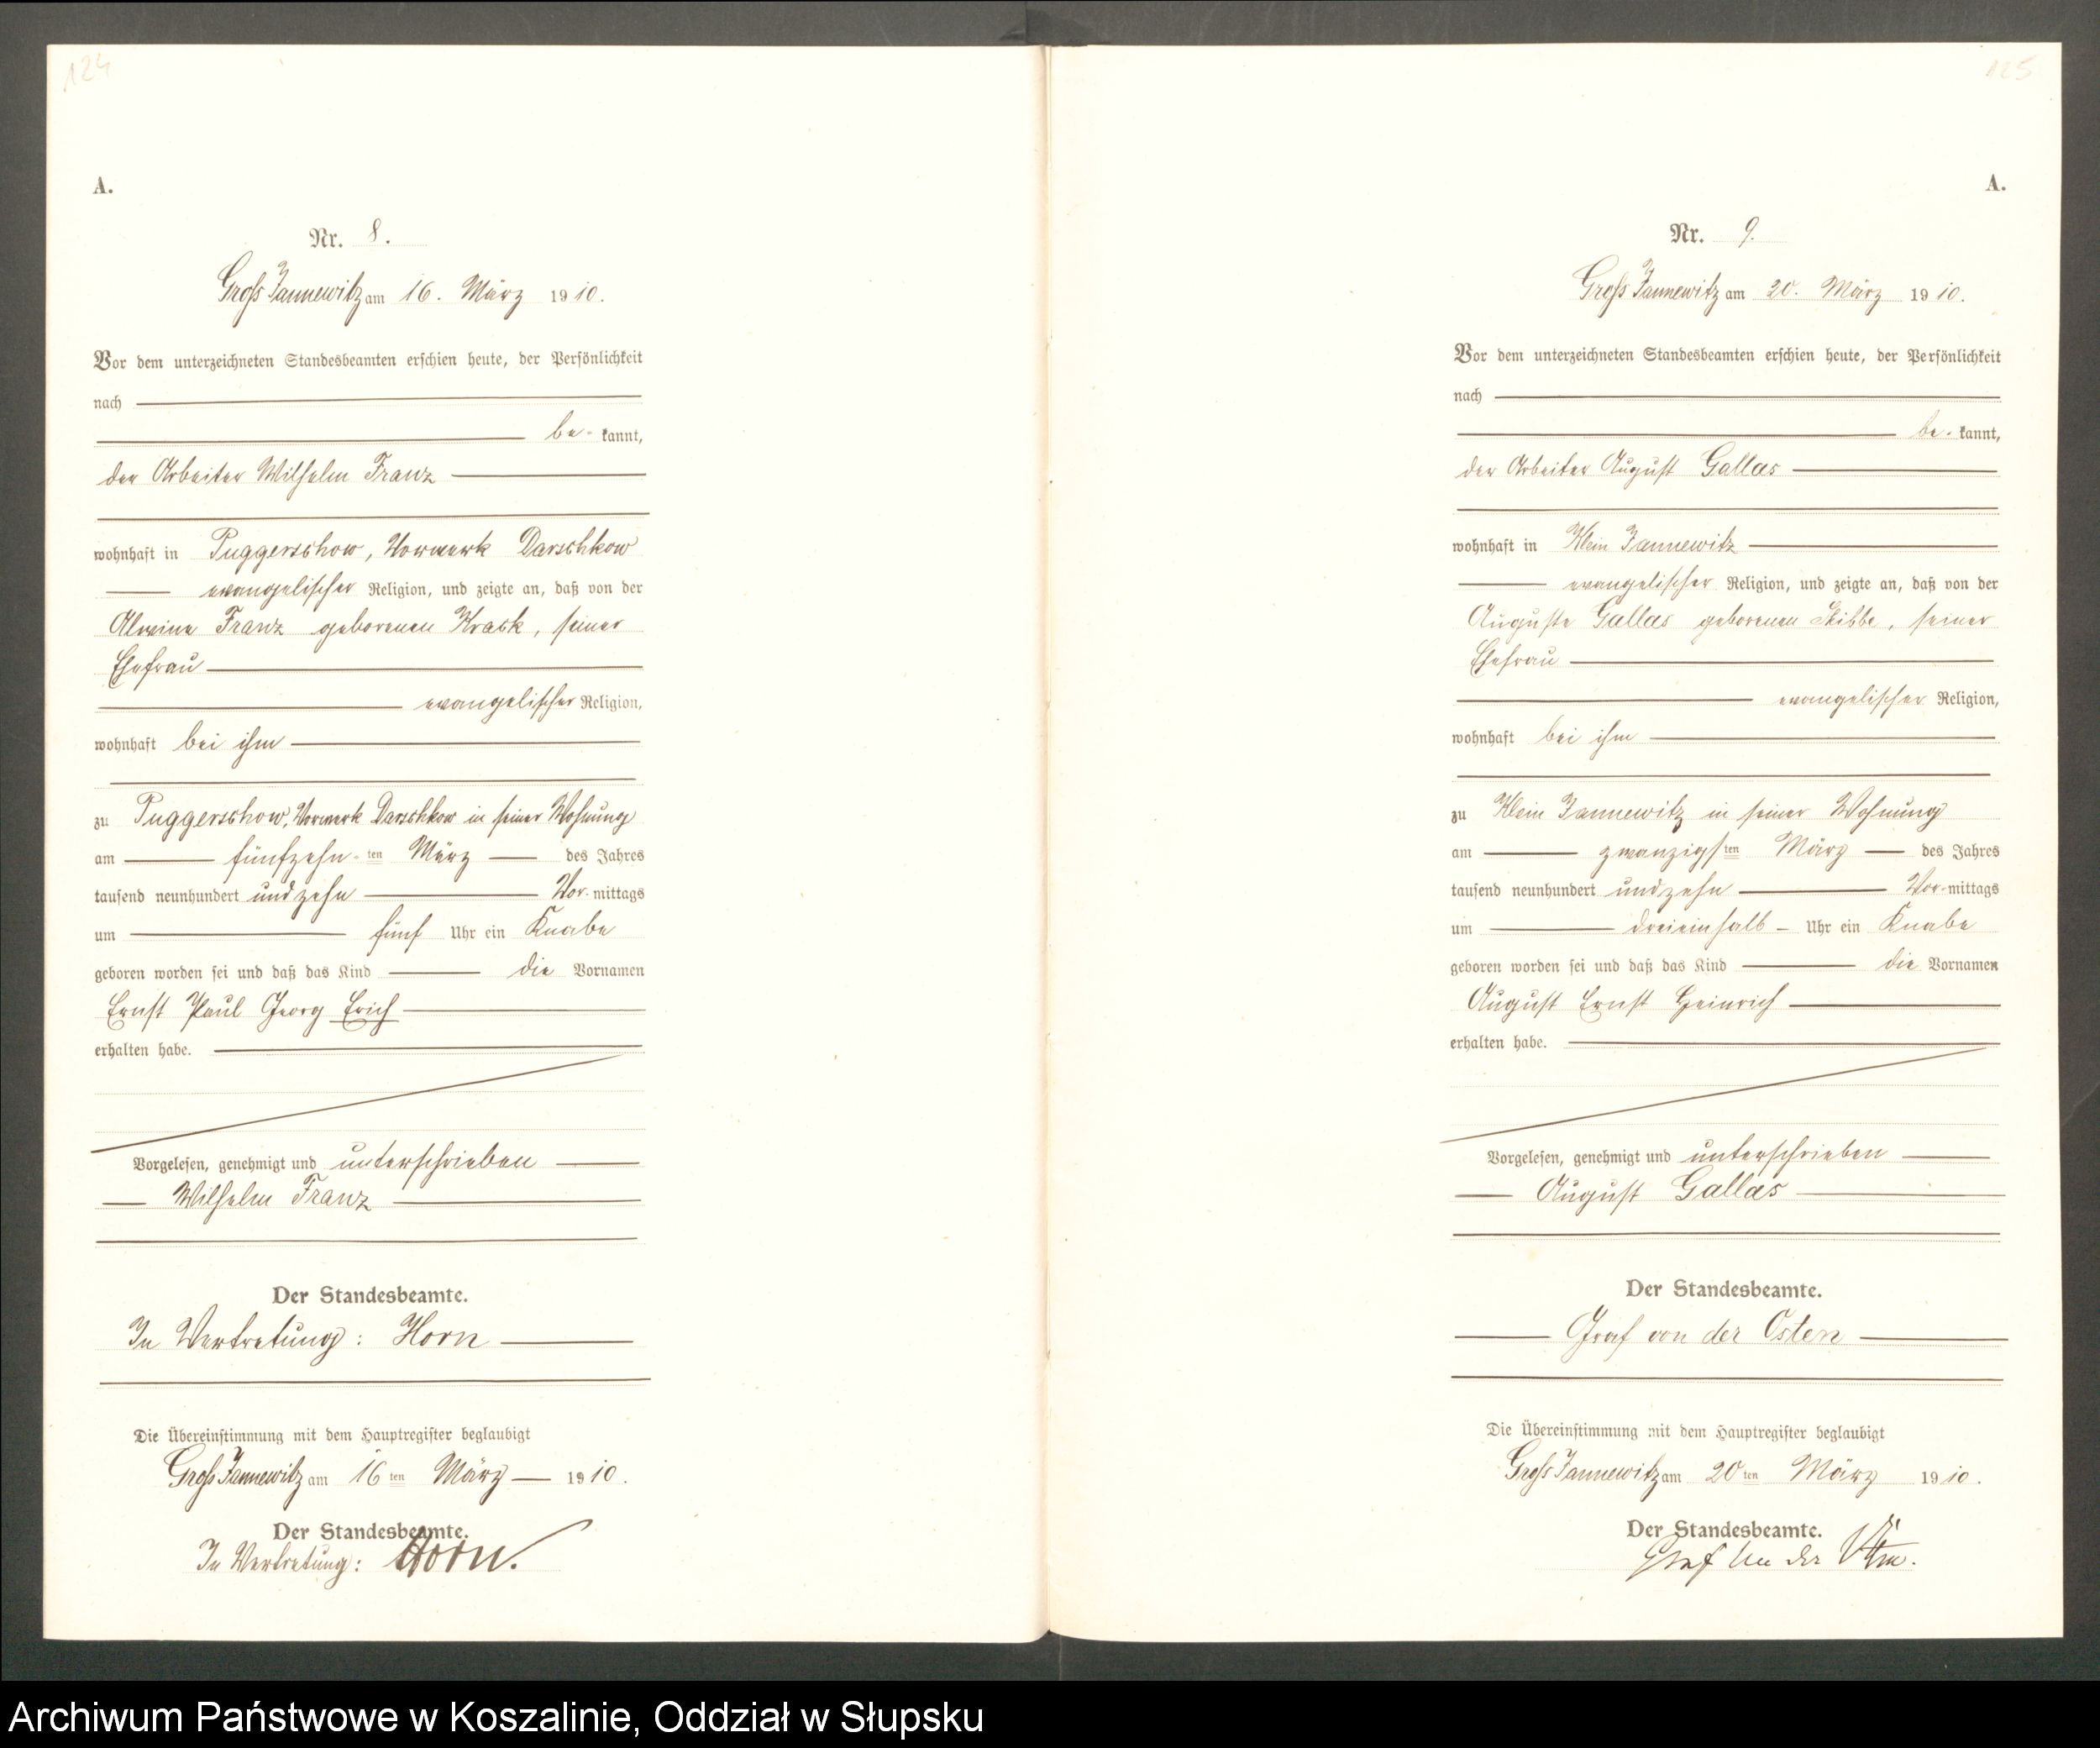 124
A.
Nr. 8.
Gross Jannewitz am 16. März 1910.
Vor dem unterzeichneten Standesbeamten erschien heute, der Persönlichkeit
nach
be- kannt,
der Arbeiter Wilhelm Franz
wohnhaft in Puggerschow, Vorwerk Darschkow
evangelischer Religion, und zeigte an, daß von der
Alwine Franz geborenen Krack, seiner
Ehefrau
evangelischer Religion,
wohnhaft bei ihm
zu Puggerschow, Vorwerk Darschkow in seiner Wohnung
am fünfzehn-ten März des Jahres
tausend neunhundert undzehn Vor-mittags
um fünf Uhr ein Knabe
geboren worden sei und daß das Kind die Vornamen
Ernst Paul Georg Erich
erhalten habe.
Vorgelesen, genehmigt und unterschrieben
Wilhelm Franz
Der Standesbeamte.
In Vertretung: Horn
Die Übereinstimmung mit dem Hauptregister beglaubigt
Gross Jannewitz am 16ten März 1910.
Der Standesbeamte.
In Vertretung: Horn.
125
A.
Nr. 9.
Gross Jannewitz am 20. März 1910.
Vor dem unterzeichneten Standesbeamten erschien heute, der Persönlichkeit
nach
be- kannt,
der Arbeiter August Gallas
wohnhaft in Klein Jannewitz
evangelischer Religion, und zeigte an, daß von der
Auguste Gallas geborenen Skibbe, seiner
Ehefrau
evangelischer Religion,
wohnhaft bei ihm
zu Klein Jannewitz in seiner Wohnung
am zwanzigsten März des Jahres
tausend neunhundert undzehn Vor-mittags
um dreieinhalb - Uhr ein Knabe
geboren worden sei und daß das Kind die Vornamen
August Ernst Heinrich
erhalten habe.
Vorgelesen, genehmigt und unterschrieben
August Gallas
Der Standesbeamte.
Graf von der Osten
Die Übereinstimmung mit dem Hauptregister beglaubigt
Gross Jannewitz am 20ten März 1910.
Der Standesbeamte.
Graf von der Osten.
Archiwum Państwowe w Koszalinie, Oddział w Słupsku